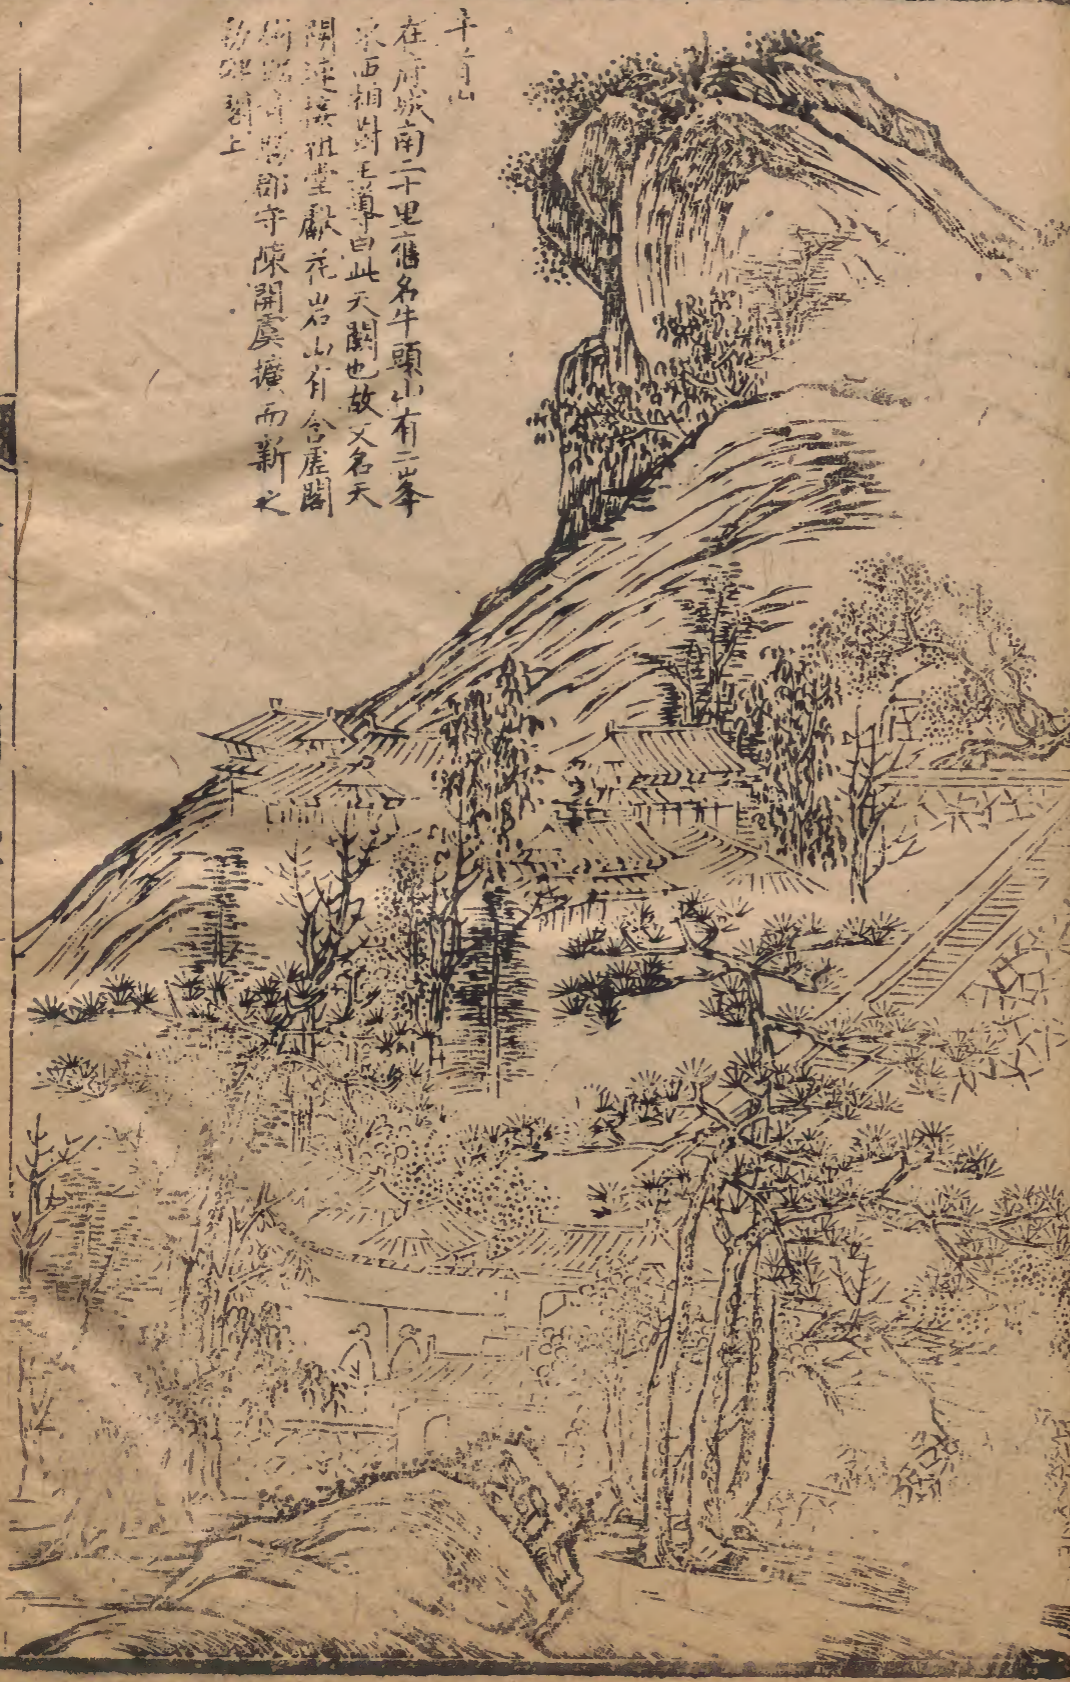 牛首山
在府城南二十里舊名牛頭山有二峯
東西相對王導曰此天闕也故又名天
闕連接祖堂獻花岩山有含虛閣
郡守陳開虞擴而新之
閣上